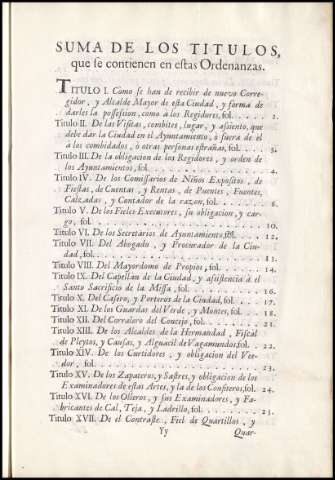 SUMA DE LOS TITULOS,
que se contienen en estas Ordenanzas.
TITULO I. Como se han de recibir de nuevo Corre-
gidor, y Alcalde Mayor de esta Ciudad, y forma de
darles la possession, como a los Regidores, fol. . . . 1.
Titulo II. De las Visitas, combites, lugar, y assiento, que
debe dár la Ciudad en el Ayuntamiento, ò fuera de él
à los combidados, ò otras personas estrañas, fol. . . . 3.
Titulo III. De la obligacion de los Regidores, y orden de
los Ayuntamientos, fol. . . . 4.
Titulo IV. De los Comissarios de Niños Expositos, de
Fiestas, de Cuentas, y Rentas, de Puentes, Fuentes,
Calzadas, y Contador de la razon, fol. . . . 8.
Titulo V. De los Fieles Executores, su obligacion, y car-
go, fol. . . . 10.
Titulo VI. De los Secretarios de Ayuntamiento, fol. . . . 12.
Titulo VII. Del Abogado, y Procurador de la Ciu-
dad, fol. . . . 13.
Titulo VIII. Del Mayordomo de Propios, fol. . . . 14.
Titulo IX. Del Capellàn de la Ciudad, y assistencia à el
Santo Sacrificio de la Missa, fol. . . . 16.
Titulo X. Del Casero, y Porteros de la Ciudad, fol. . . . 17.
Titulo XI. De los Guardas del Verde, y Montes, fol. . . . 18.
Titulo XII. Del Corralero del Concejo, fol. . . . 20.
Titulo XIII. De los Alcaldes de la Hermandad, Fiscal
de Pleytos, y Causas, y Alguacil de Vagamundos, fol. . . . 22.
Titulo XIV. De los Curtidores, y obligacion del Vee-
dor, fol. . . . 23.
Titulo XV. De los Zapateros, y Sastres, y obligacion de los
Examinadores de estas Artes, y la de los Confiteros, fol. . . . 24.
Titulo XVI. De los Olleros, y sus Examinadores, y Fa-
bricantes de Cal, Teja, y Ladrillo, fol. . . . 25.
Titulo XVII. De el Contraste, Fiel de Quartillos, y
Yy Quar-